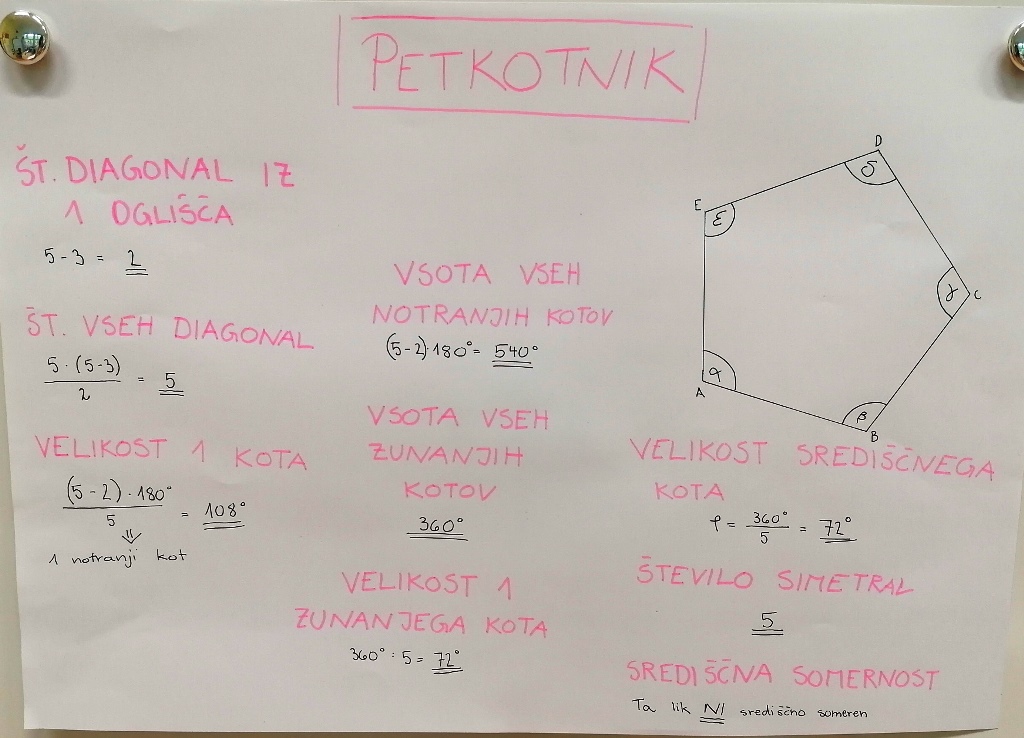 PETKOTNIK
ŠT. DIAGONAL IZ
1 OGLIŠČA
5-3 = 2
ŠT. VSEH DIAGONAL
5·(5-3)
2
= 5
VELIKOST 1 KOTA
(5-2)·180°
5
= 108°
1 notranji kot
VSOTA VSEH
NOTRANJIH KOTOV
(5-2)·180°= 540°
VSOTA VSEH
ZUNANJIH
KOTOV
360°
VELIKOST 1
ZUNANJEGA KOTA
360° : 5 = 72°
D
δ
E
ε
γ
C
α
A
β
B
VELIKOST SREDIŠČNEGA
KOTA
φ = 360°
5
= 72°
ŠTEVILO SIMETRAL
5
SREDIŠČNA SOMERNOST
Ta lik NI središčno someren